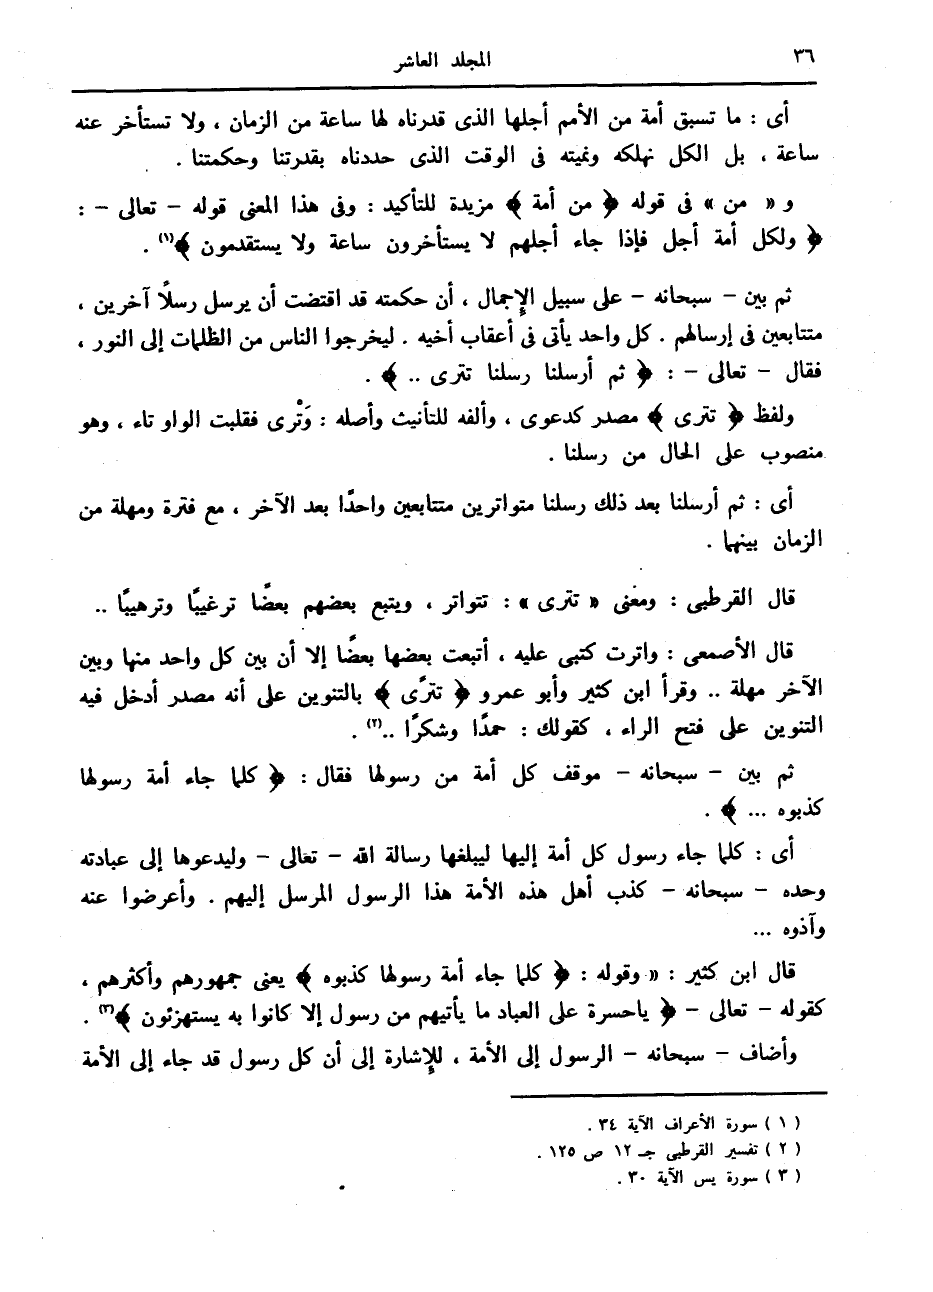 ٣٦
المجلد العاشر
أى : ما تسبق أمة من الأمم أجلها الذى قدرناه لها ساعة من الزمان ، ولا تستأخر عنه
ساعة ، بل الكل نهلكه ونميته فى الوقت الذى حددناه بقدرتنا وحكمتنا .
و « من » فى قوله ﴿ من أمة ﴾ مزيدة للتأكيد : وفى هذا المعنى قوله – تعالى – :
﴿ ولكل أمة أجل فإذا جاء أجلهم لا يستأخرون ساعة ولا يستقدمون ﴾(١) .
ثم بين – سبحانه – على سبيل الإجمال ، أن حكمته قد اقتضت أن يرسل رسلًا آخرين ،
متتابعين فى إرسالهم . كل واحد يأتى فى أعقاب أخيه . ليخرجوا الناس من الظلمات إلى النور ،
فقال – تعالى – : ﴿ ثم أرسلنا رسلنا تترى .. ﴾ .
ولفظ ﴿ تترى ﴾ مصدر كدعوى ، وألفه للتأنيث وأصله : وَتْرى فقلبت الواو تاء ، وهو
منصوب على الحال من رسلنا .
أى : ثم أرسلنا بعد ذلك رسلنا متواترين متتابعين واحدًا بعد الآخر ، مع فترة ومهلة من
الزمان بينهما .
قال القرطبى : ومعنى « تترى » : تتواتر ، ويتبع بعضهم بعضًا ترغيبًا وترهيبًا ..
قال الأصمعى : واترت كتبى عليه ، أتبعت بعضها بعضًا إلا أن بين كل واحد منها وبين
الآخر مهلة .. وقرأ ابن كثير وأبو عمرو ﴿ تترًى ﴾ بالتنوين على أنه مصدر أدخل فيه
التنوين على فتح الراء ، كقولك : حمدًا وشكرًا ..(٢) .
ثم بين – سبحانه – موقف كل أمة من رسولها فقال : ﴿ كلما جاء أمة رسولها
كذبوه ... ﴾ .
أى : كلما جاء رسول كل أمة إليها ليبلغها رسالة الله – تعالى – وليدعوها إلى عبادته
وحده – سبحانه – كذب أهل هذه الأمة هذا الرسول المرسل إليهم . وأعرضوا عنه
وآذوه ...
قال ابن كثير : « وقوله : ﴿ كلما جاء أمة رسولها كذبوه ﴾ يعنى جمهورهم وأكثرهم ،
كقوله – تعالى – ﴿ ياحسرة على العباد ما يأتيهم من رسول إلا كانوا به يستهزئون ﴾(٣) .
وأضاف – سبحانه – الرسول إلى الأمة ، للإشارة إلى أن كل رسول قد جاء إلى الأمة
( ١ ) سورة الأعراف الآية ٣٤ .
( ٢ ) تفسير القرطبى جـ ١٢ ص ١٢٥ .
( ٣ ) سورة يس الآية ٣٠ .